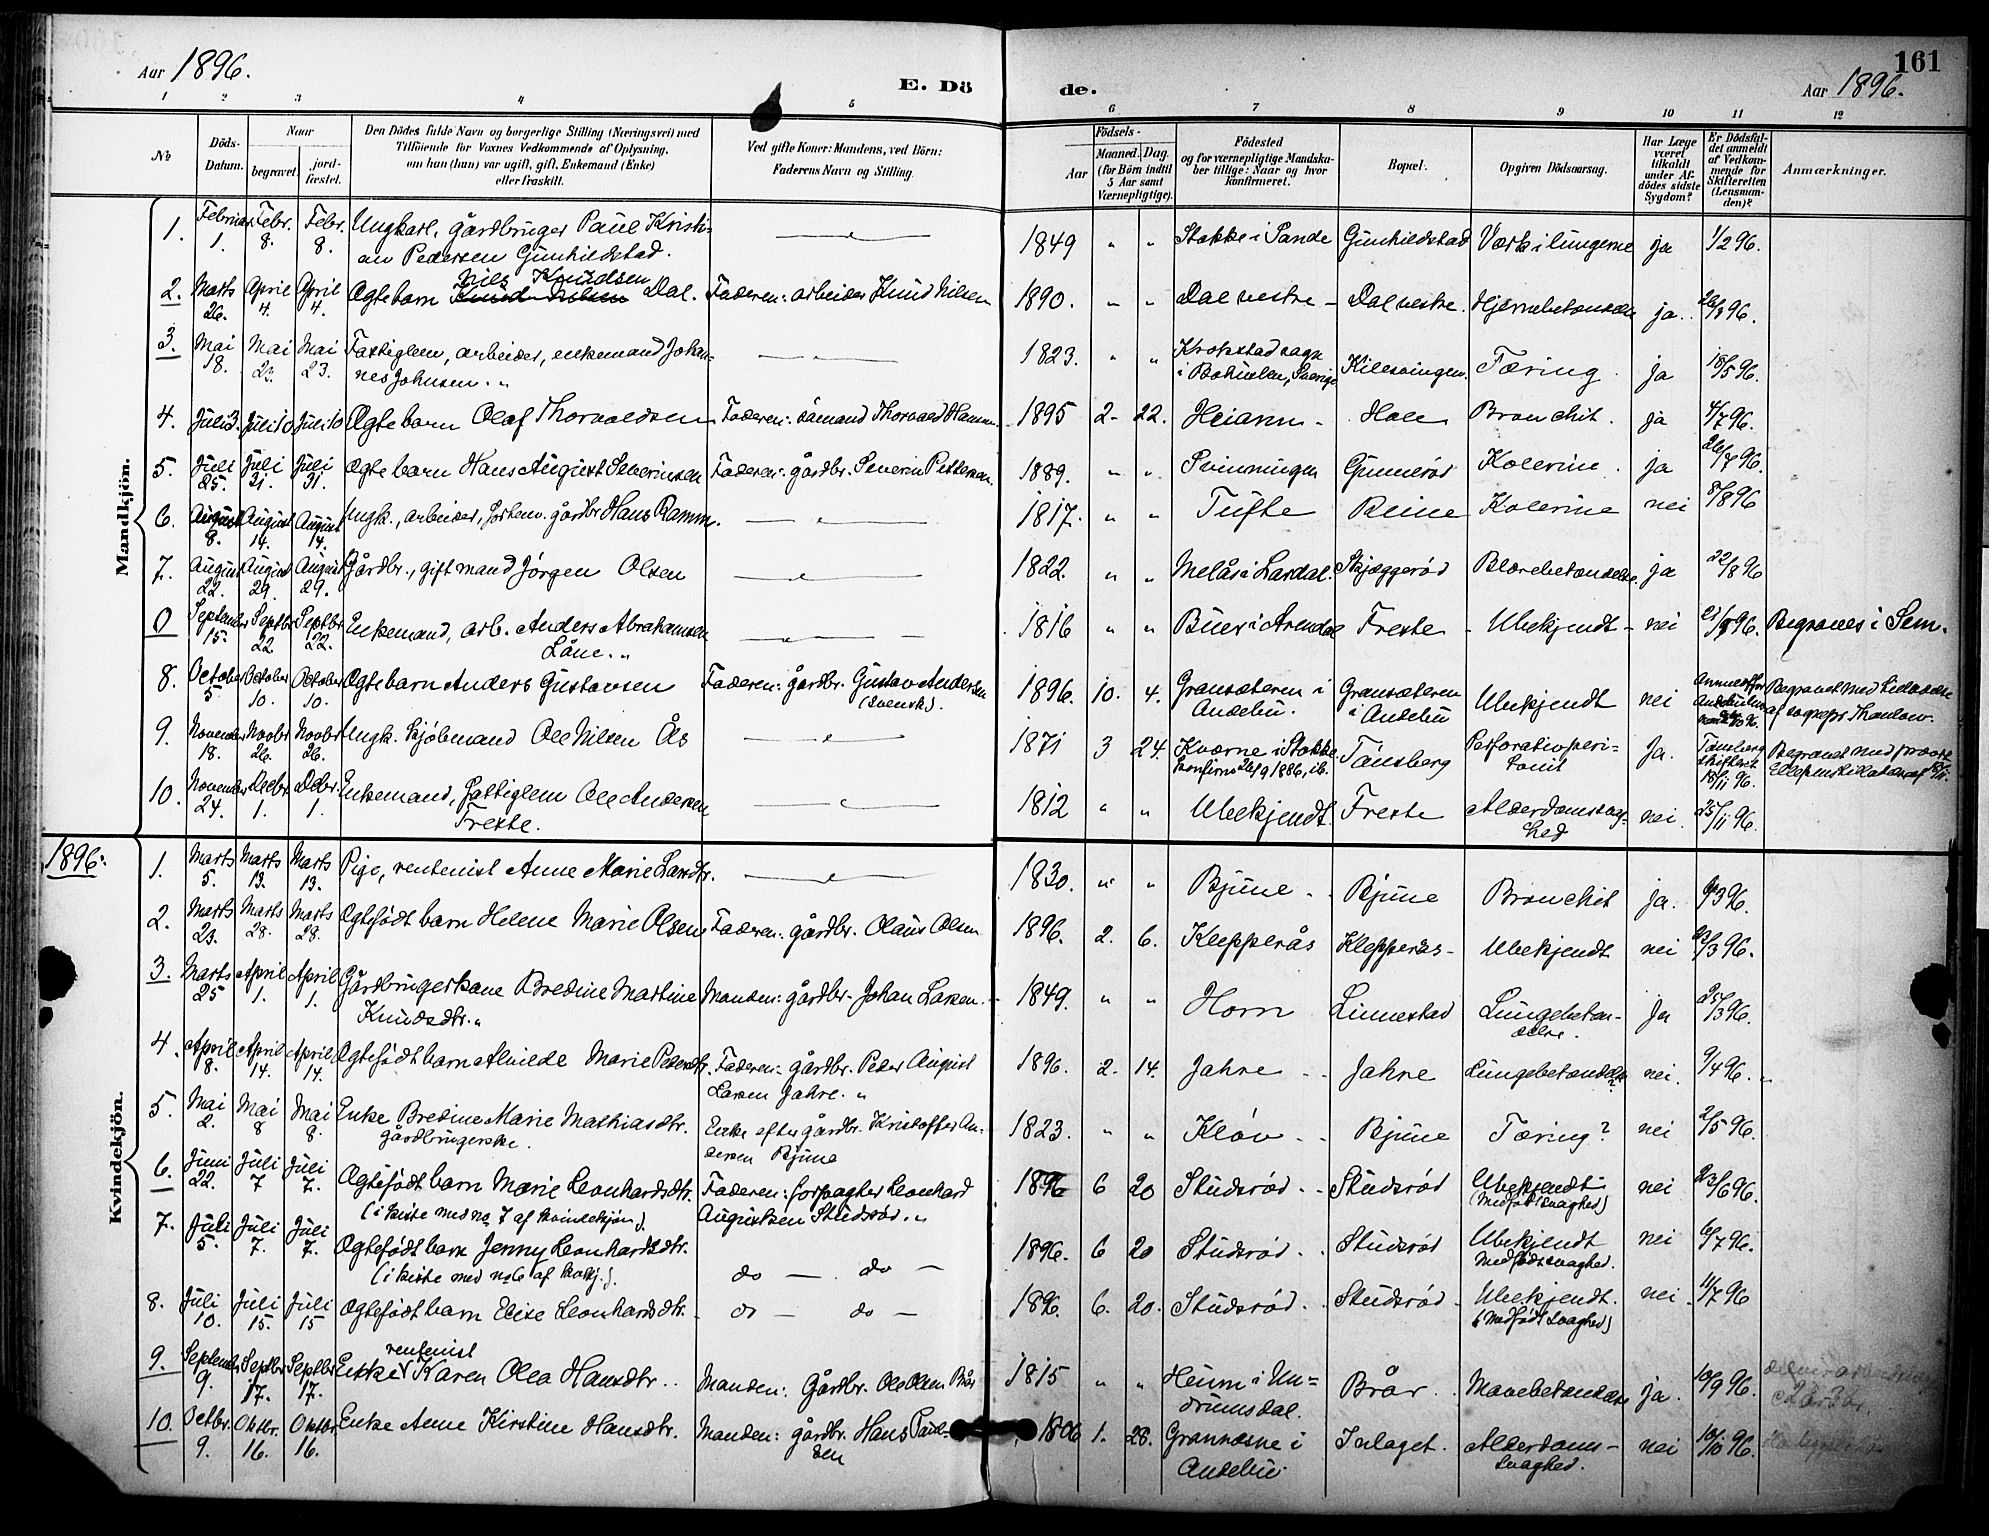 161
Aar 1896.
E. Dö
de.
Aar 1896.
1 2 3 4 5 6 7 8 9 10 11 12
No
Döds-Datum.
Naar
begravet.
jordfæstet.
Den Dödes fulde Navn og borgerlige Stilling (Næringsvei) med
Tilföiende for Voxnes Vedkommende af Oplysning,
om han (hun) var ugift, gift, Enkemand (Enke)
eller fraskilt.
Ved gifte Koner: Mandens, ved Börn:
Faderens Navn og Stilling.
Födsels-
Aar
Maaned. Dag.
(for Börn indtil
5 Aar samt
Værnepligtige).
Födested
og for værnepligtige Mandskaber tillige: Naar og hvor
konfirmeret.
Bopæl.
Opgiven Dödsaarsag.
Har Læge
været
tilkaldt
under Afdödes sidste
Sygdom?
Er Dödsfaldet anmeldt
af Vedkommende for
Skifteretten
(Lensmanden)?
Anmærkninger.
Mandkjön.
1. Februar 1. Febr. 8. Febr. 8. Ungkarl, gårdbruger Paul Kristian Pedersen Gunhildstad. 1849 " " Stokke i Sande Gunhildstad Værk i lungerne ja 1/2 96.
2. Marts 26. April 4. April 4. Ægtebarn Nils Knudsen Dal. Faderen: arbeider Knud Nilsen 1890. " " Dal vestre - Dal vestre. Hjernebetændelse ja. 26/3 96.
3. Mai 18. Mai 23. Mai 23. Fattiglem, arbeider, enkemand Johannes Johnsen. " 1823. " " Krokstad sogn i Bohuslen, Sverige Tæring. ja 18/5 96.
4. Juli 3. Juli 10 Juli 10 Ægtebarn Olaf Thorvaldsen Faderen: sömand Thorvald Hansen. 1895 2- 22. Heiann - Bronchit. ja 4/7 96.
5. Juli 25. Juli 31. Juli 31. Ægtebarn Hans August Severinsen Faderen: gårdbr. Severin Pettersen. 1889. " " Svinningen Gunnerød Kolerine. ja 26/7 96.
6. August 8. August 14. August 14. Ungk., arbeider, forhenv. gårdbr Hans Ramm. 1817. " " Tufte Bjune Kolerine nei 8/8 96
7. August 22. August 29. August 29. Gårdbr., gift mand Jörgen Olsen 1822. " " Melås i Lardal. Skjæggerød Blærebetændelse. ja 22/8 96
0 September 15. Septbr 22 Septbr 22. Enkemand, arb. Anders Abrahamsen Låne. " 1816 " " Buer i Arendal Freste - Ubekjendt - nei 21/9 96. Begraves i Sem.
8. October 5 October 10. October 10. Ægtebarn Anders Gustavsen Faderen: gårdbr. Gustav Andersen (svensk). 1896. 10. 4. Gransæteren i Andebu. Gransæteren i Andebu Ubekjendt nei
9. November 18. Novbr 26. Novbr 26. Ungk. kjöbmand Ole Nilsen Ås 1871 3 24. Kværne i Stokke konfirm. 26/9 1886, ib. Tönsberg Perforativperitonit Ja. Tönsberg skifteret 18/11 96.
10. November 24. Decbr 1. Decbr. 1. Enkemand, fattiglem Ole Andersen Freste. 1812 " " Ubekjendt. Freste Alderdomssvaghed nei. 25/11 96.
1896.
Kvindekjön.
1. Marts 5. Marts 13. Marts 13. Pige, rentenist Anne Marie Larsdtr. 1830. " " Bjune - Bjune Bronchit ja. 6/3 96.
2. Marts 23. Marts 28. Marts 28. Ægtefödt barn Helene Marie Olsen Faderen: gårdbr. Olaus Olsen 1896. 2. 6. Klepperås Klepperås - Ubekjendt nei 23/3 96.
3. Marts 25 April 1. April 1. Gårdbrugerkone Bredine Martine Knudsdtr. " Manden: gårdbr. Johan Larsen. 1849. " " Horn Linnestad Lungebetændelse. Ja 25/3 96.
4. April 8. April 14. April 14. Ægtefödt barn Alvilde Marie Pedersdtr. Faderen: gårdbr. Peder August Larsen Jahre. " 1896. 2. 14. Jahre - Jahre Lungebetændelse nei. 9/4 96.
5. Mai 2. Mai 8 Mai 8. Enke Bredine Marie Mathiasdtr. gårdbrugerske. Enke efter gårdbr. Kristoffer Andersen Bjune 1823. " " Klöv - Bjune Tæring? nei 2/5 96.
6. Juni 22. Juli 7 Juli 7. Ægtefödt barn Marie Leonhardsdtr. (i kiste med no 7 af kvindekjön). Faderen: forpagter Leonhard Augustsen Studsrød. " 1896 6 20 Studsrød - Studsrød Ubekjendt (Medfödt svaghed) nei 23/6 96.
7. Juli 5. Juli 7. Juli 7. Ægtefödt barn Jenny Leonhardsdtr. (i kiste med no 6 af kvkj.). do — do — 1896. 6 20 Studsrød - Studsrød Ubekjendt Medfödt svaghed. nei 6/7 96.
8. Juli 10. Juli 15. Juli 15 Ægtefödt barn Elise Leonhardsdtr. - do — do — 1896. 6. 20. Studsrød - Studsrød - Ubekjendt. (Medfödt svaghed) nei. 11/7 96
9. September 9. Septbr 17. Septbr 17. Enke rentenist Karen Olea Hansdtr. Manden: Gårdbr. Ole Olsen Brår 1815 " " Heum i Undrumsdal. Brår. Mavebetændelse ja. 10/9 96.
10. Octbr. 9. Oktbr. 16. Oktbr 16. Enke Anne Kirstine Hansdtr. Manden: gårdbr. Hans Paulsen 1806 1. 28. Grannæsne i Andebu Inlaget. Alderdomssvaghed. nei 10/10 96.